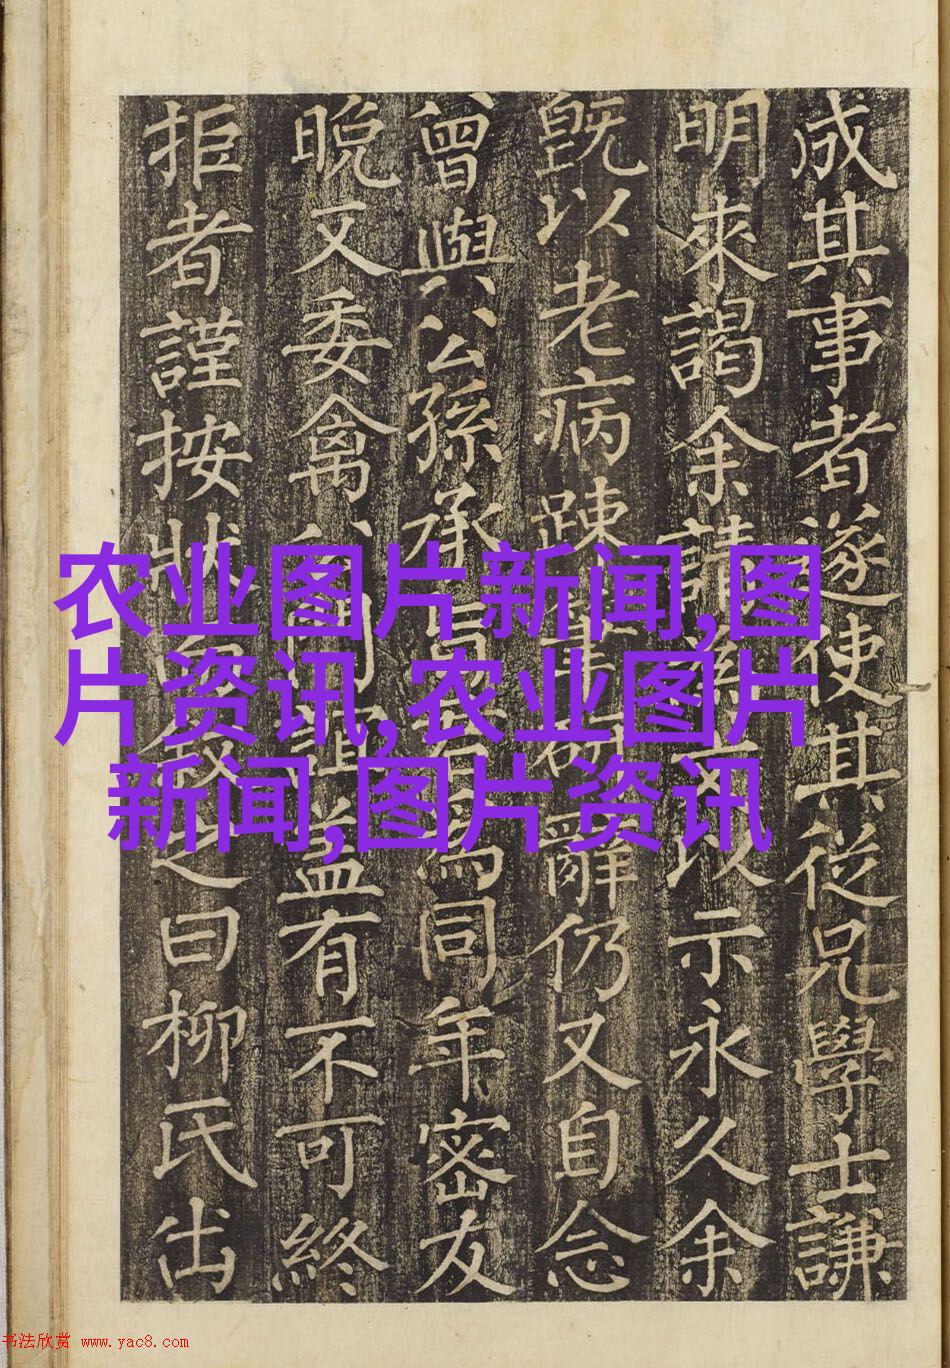 成其事者遂使其從兄學士謙
明來謁余請以示永久余
旣以老病踈辭仍又自念
曾與公孫承爲同年密友
晚又委禽益有不可終
拒者謹按狀之曰柳氏出
农业图片新闻,图
片资讯,农业图片
新闻,图片资讯
书法欣赏 www.yac8.com